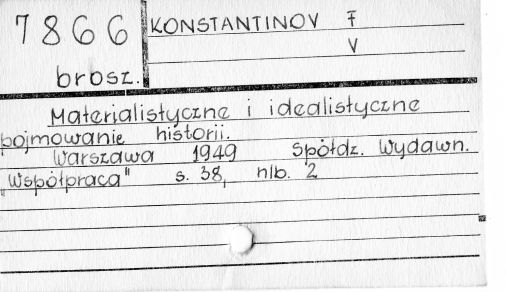 7866
KONSTANTINOV F
V
brosz.
Materialistyczne i idealistyczne
pojmowanie historii.
Warszawa 1949 Spółdz. Wydawn.
"Współpraca" s. 38, nlb. 2